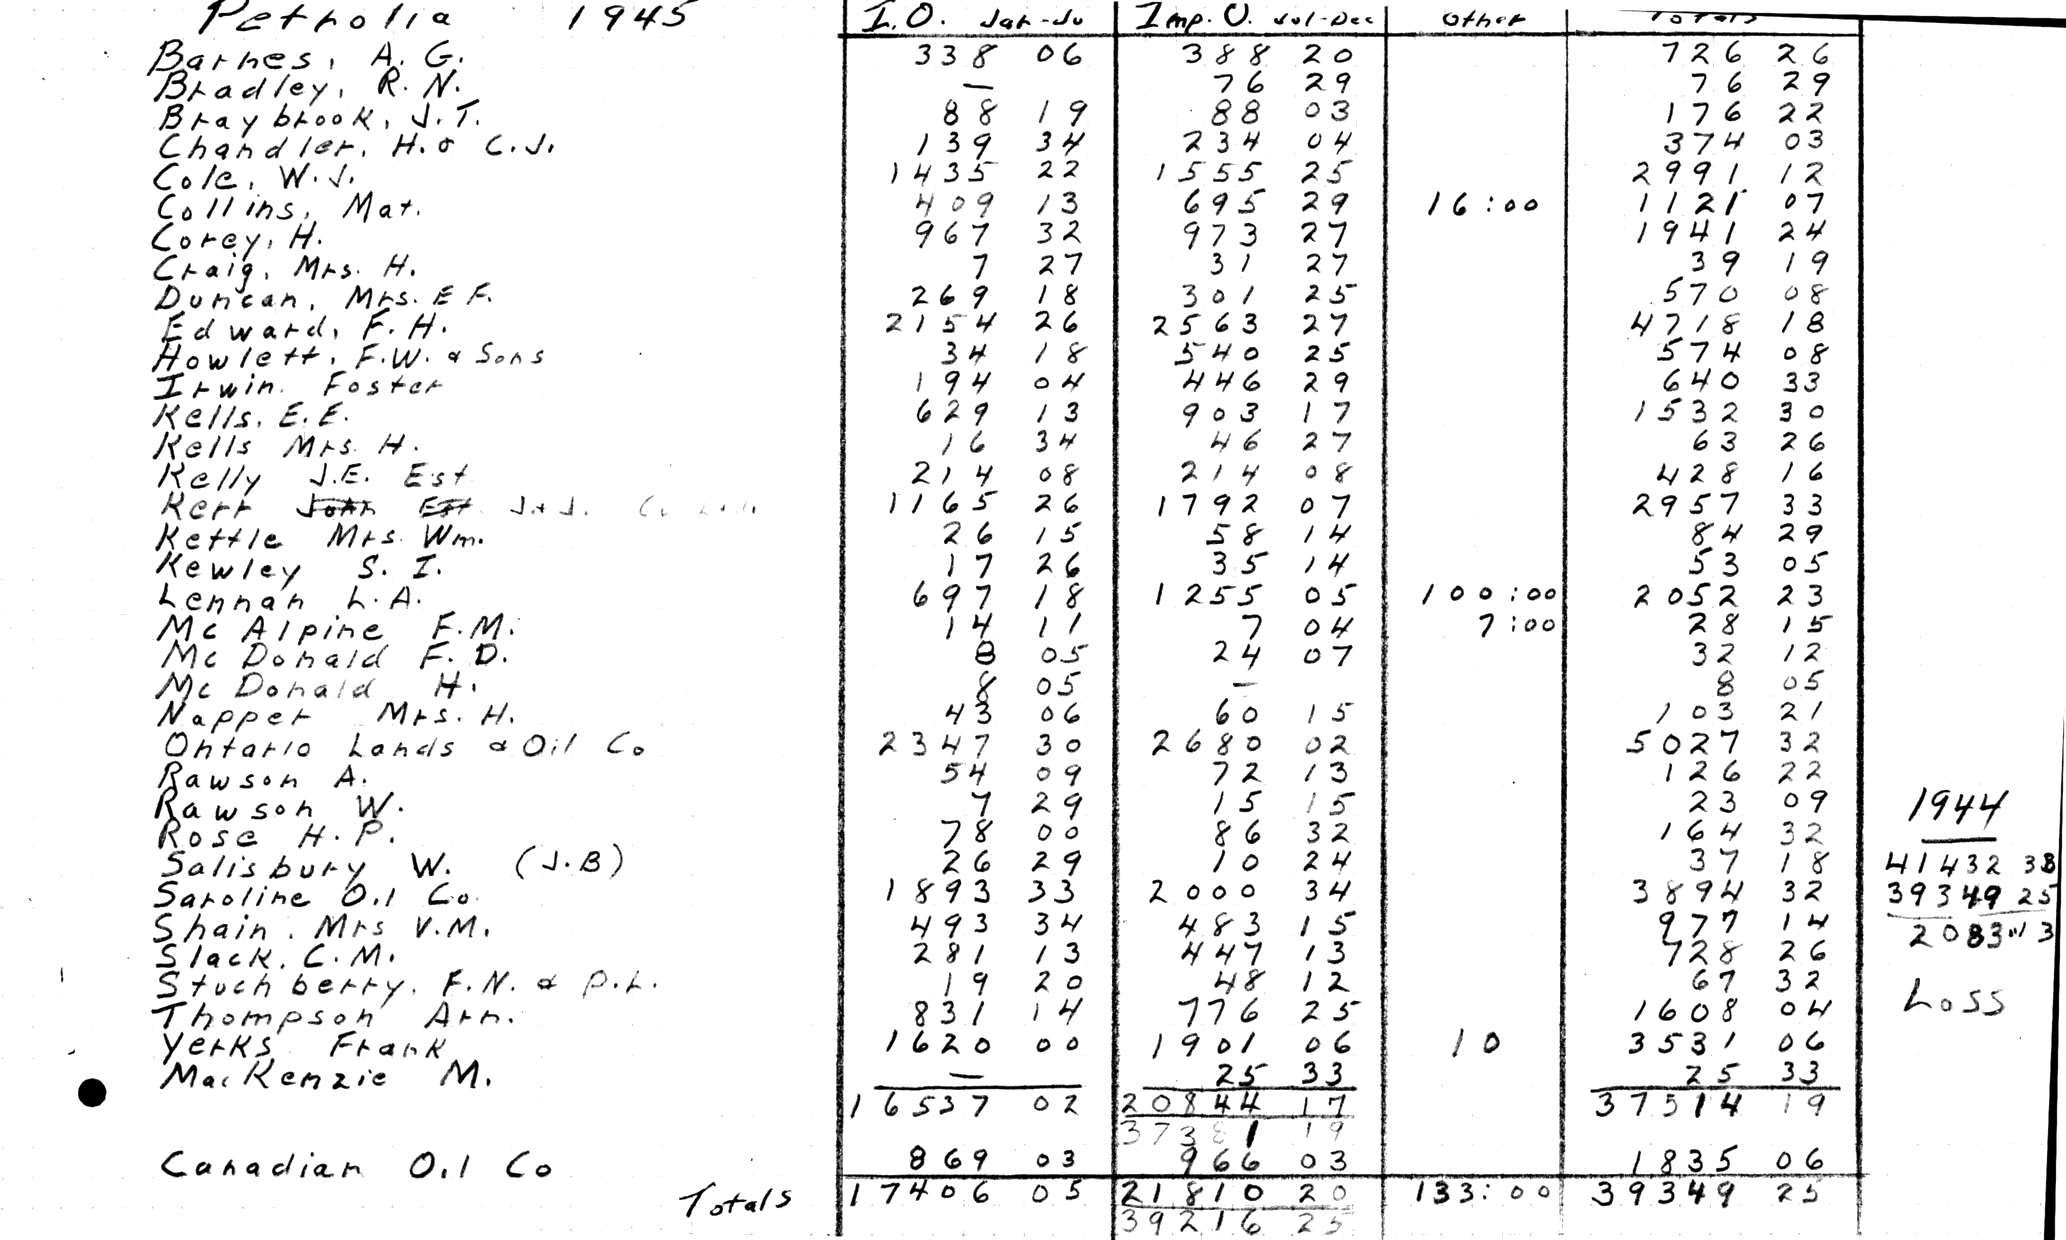 Petrolia 1945 I.O. Jan-Ju Imp. O. Jul-Dec Other Totals
Barnes, A. G. 338 06 388 20 726 26
Bradley, R. N. — 76 29 76 29
Braybrook, J.T. 88 19 88 03 176 22
Chandler, H. & C.J. 139 34 234 04 374 03
Cole, W.J. 1435 22 1555 25 2991 12
Collins, Mat. 409 13 695 29 16:00 1121 07
Corey, H. 967 32 973 27 1941 24
Craig, Mrs. H. 7 27 31 27 39 19
Duncan, Mrs. E F. 269 18 301 25 570 08
Edward, F. H. 2154 26 2563 27 4718 18
Howlett, F.W. & Sons 34 18 540 25 574 08
Irwin Foster 194 04 446 29 640 33
Kells, E.E. 629 13 903 17 1532 30
Kells Mrs. H. 16 34 46 27 63 26
Kelly J.E. Est 214 08 214 08 428 16
Kerr John Est J.&J. 1165 26 1792 07 2957 33
Kettle Mrs Wm. 26 15 58 14 84 29
Kewley S. I. 17 26 35 14 53 05
Lennan L.A. 697 18 1255 05 100:00 2052 23
Mc Alpine F.M. 14 11 7 04 7:00 28 15
Mc Donald F. D. 8 05 24 07 32 12
Mc Donald H. 8 05 — 8 05
Napper Mrs. H. 43 06 60 15 103 21
Ontario Lands & Oil Co 2347 30 2680 02 5027 32
Rawson A. 54 09 72 13 126 22
Rawson W. 7 29 15 15 23 09
Rose H. P. 78 00 86 32 164 32
Salisbury W. (J.B) 26 29 10 24 37 18
Saroline Oil Co. 1893 33 2000 34 3894 32
Shain. Mrs V.M. 493 34 483 15 977 14
Slack, C.M. 281 13 447 13 728 26
Stuchberry, F.N. & P.L. 19 20 48 12 67 32
Thompson Arn. 831 14 776 25 1608 04
Yerks Frank 1620 00 1901 06 10 3531 06
MacKenzie M. — 25 33 25 33
16537 02 20844 17 37514 19
37381 19
Canadian Oil Co 869 03 966 03 1835 06
Totals 17406 05 21810 20 133:00 39349 25
39216 25
1944
41432 38
39349 25
2083 13
Loss